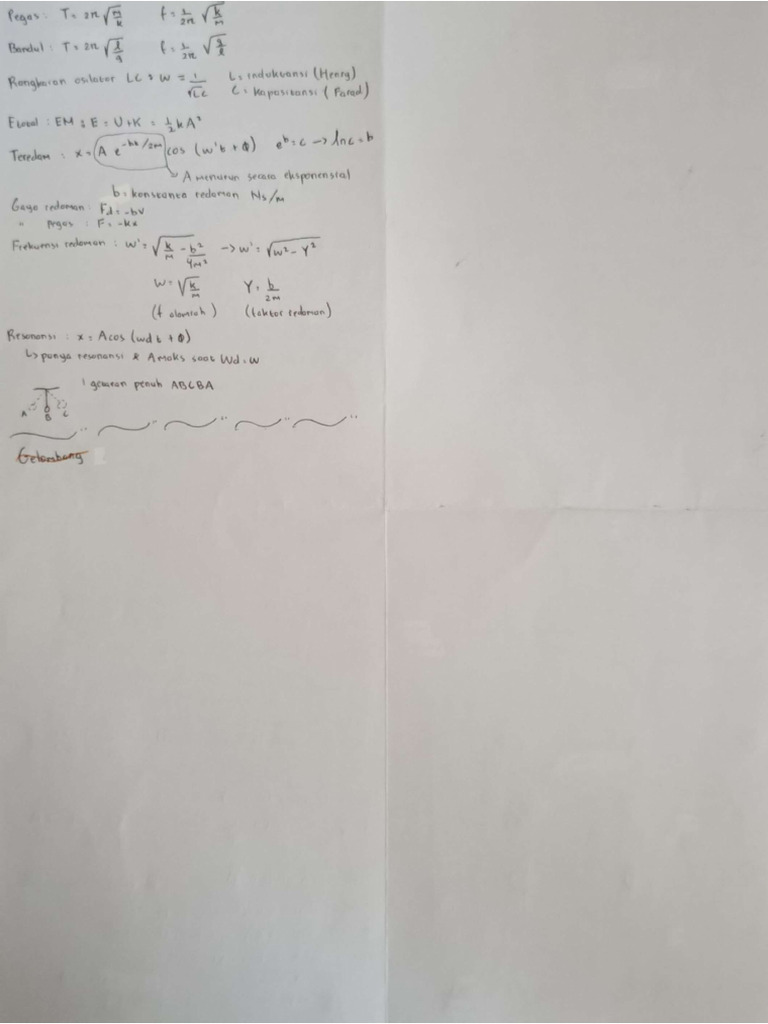 Pegas : T = 2π √(m/k)   f = 1/2π √(k/m)
Bandul : T = 2π √(l/g)   f = 1/2π √(g/l)
Rangkaian osilator LC : W = 1/√LC   L = induktansi (Henry)
C = Kapasitansi (Farad)
Etotal : EM : E = U+K = ½kA²
Teredam : x = A e^(-bt/2m) cos (w't + Φ)   e^b = c → ln c = b
↳ A menurun secara eksponensial
b = konstanta redaman Ns/m
Gaya redaman : Fd = -bv
" Pegas : F = -kx
Frekuensi redaman : W' = √(k/m - b²/4m²) → w' = √(w² - γ²)
W = √(k/m)   γ = b/2m
(f alamiah)   (faktor redaman)
Resonansi : x = A cos (wd t + Φ)
↳ punya resonansi & A maks saat Wd = w
1 getaran penuh ABCBA
A B C
Gelombang